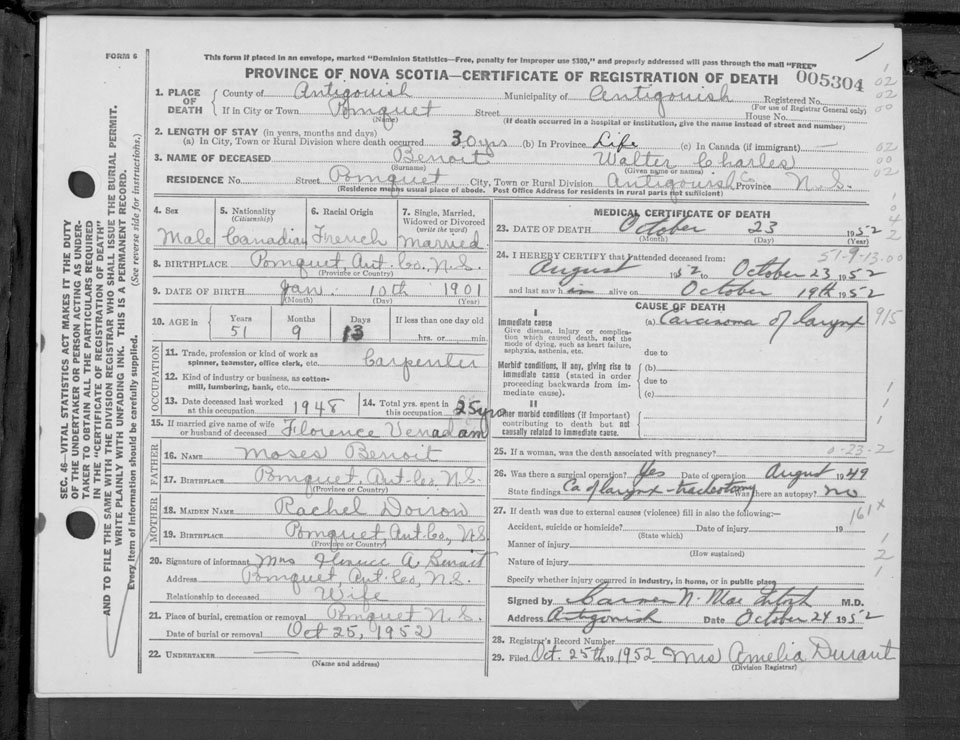 FORM 6
This form if placed in an envelope, marked "Dominion Statistics—Free, penalty for improper use $300," and properly addressed will pass through the mail "FREE"
PROVINCE OF NOVA SCOTIA—CERTIFICATE OF REGISTRATION OF DEATH 005304
1. PLACE OF DEATH County of Antigonish Municipality of Antigonish Registered No.
(For use of Registrar General only)
If in City or Town Pomquet Street House No.
(Name) (If death occurred in a hospital or institution, give the name instead of street and number)
2. LENGTH OF STAY (in years, months and days)
(a) In City, Town or Rural Division where death occurred 30 yrs (b) In Province Life (c) In Canada (if immigrant) —
3. NAME OF DECEASED Benoit Walter Charles
(Surname) (Given name or names)
RESIDENCE No. Street Pomquet City, Town or Rural Division Antigonish Co. Province N.S.
(Residence means usual place of abode. Post Office Address for residents in rural parts not sufficient)
4. Sex 5. Nationality (Citizenship) 6. Racial Origin 7. Single, Married, Widowed or Divorced (write the word)
Male Canadian French Married
8. BIRTHPLACE Pomquet, Ant. Co., N.S.
(Province or Country)
9. DATE OF BIRTH Jan. 10th 1901
(Month) (Day) (Year)
10. AGE in Years Months Days If less than one day old
51 9 13 hrs. or min.
OCCUPATION
11. Trade, profession or kind of work as spinner, teamster, office clerk, etc. Carpenter
12. Kind of industry or business, as cotton-mill, lumbering, bank, etc.
13. Date deceased last worked at this occupation 1948 14. Total yrs. spent in this occupation 25 yrs
15. If married give name of wife or husband of deceased Florence Venadam
FATHER
16. NAME Moses Benoit
17. BIRTHPLACE Pomquet, Ant. Co, N.S.
(Province or Country)
MOTHER
18. MAIDEN NAME Rachel Doiron
19. BIRTHPLACE Pomquet Ant. Co, N.S
(Province or Country)
20. Signature of informant Mrs A. Benoit
Address Pomquet, Ant. Co, N.S.
Relationship to deceased Wife
21. Place of burial, cremation or removal Pomquet N.S.
Date of burial or removal Oct 25, 1952
22. UNDERTAKER —
(Name and address)
MEDICAL CERTIFICATE OF DEATH
23. DATE OF DEATH October 23 1952
(Month) (Day) (Year)
24. I HEREBY CERTIFY that I attended deceased from: 51-9-13.00
August 1952 to October 23 1952
and last saw h im alive on October 19th 1952
CAUSE OF DEATH
I
Immediate cause (a) Carcinoma of larynx 915
Give disease, injury or complication which caused death, not the mode of dying, such as heart failure, asphyxia, asthenia, etc. due to
Morbid conditions, if any, giving rise to immediate cause (stated in order proceeding backwards from immediate cause). (b)
due to
(c)
II
Other morbid conditions (if important) contributing to death but not causally related to immediate cause.
25. If a woman, was the death associated with pregnancy? 0-23-2
26. Was there a surgical operation? Yes Date of operation August 1949
State findings Ca of larynx - tracheotomy Was there an autopsy? no
27. If death was due to external causes (violence) fill in also the following:— 161x
Accident, suicide or homicide? Date of injury 19
(State which)
Manner of injury
(How sustained)
Nature of injury
Specify whether injury occurred in industry, in home, or in public place
Signed by Carmen N. MacIntosh M.D.
Address Antigonish Date October 24 1952
28. Registrar's Record Number
29. Filed Oct. 25th 19 1952 Mrs Amelia Durant
(Division Registrar)
SEC. 46—VITAL STATISTICS ACT MAKES IT THE DUTY
OF THE UNDERTAKER OR PERSON ACTING AS UNDER-
TAKER TO OBTAIN ALL THE PARTICULARS REQUIRED
IN THE "CERTIFICATE OF REGISTRATION OF DEATH"
AND TO FILE THE SAME WITH THE DIVISION REGISTRAR WHO SHALL ISSUE THE BURIAL PERMIT.
WRITE PLAINLY WITH UNFADING INK. THIS IS A PERMANENT RECORD.
Every item of information should be carefully supplied. (See reverse side for instructions.)